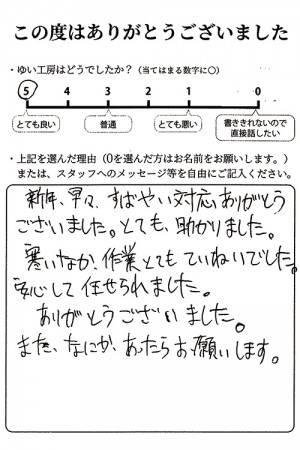 この度はありがとうございました
・ゆい工房はどうでしたか？（当てはまる数字に○）
5 4 3 2 1 0
とても良い 普通 とても悪い 書ききれないので直接話したい
・上記を選んだ理由（0を選んだ方はお名前をお願いします。）
または、スタッフへのメッセージ等を自由にご記入ください。
新年、早々、すばやい対応ありがとう
ございました。とても、助かりました。
寒いなか、作業とてもていねいでした。
安心して任せられました。
ありがとうございました。
また、なにか、あったらお願いします。